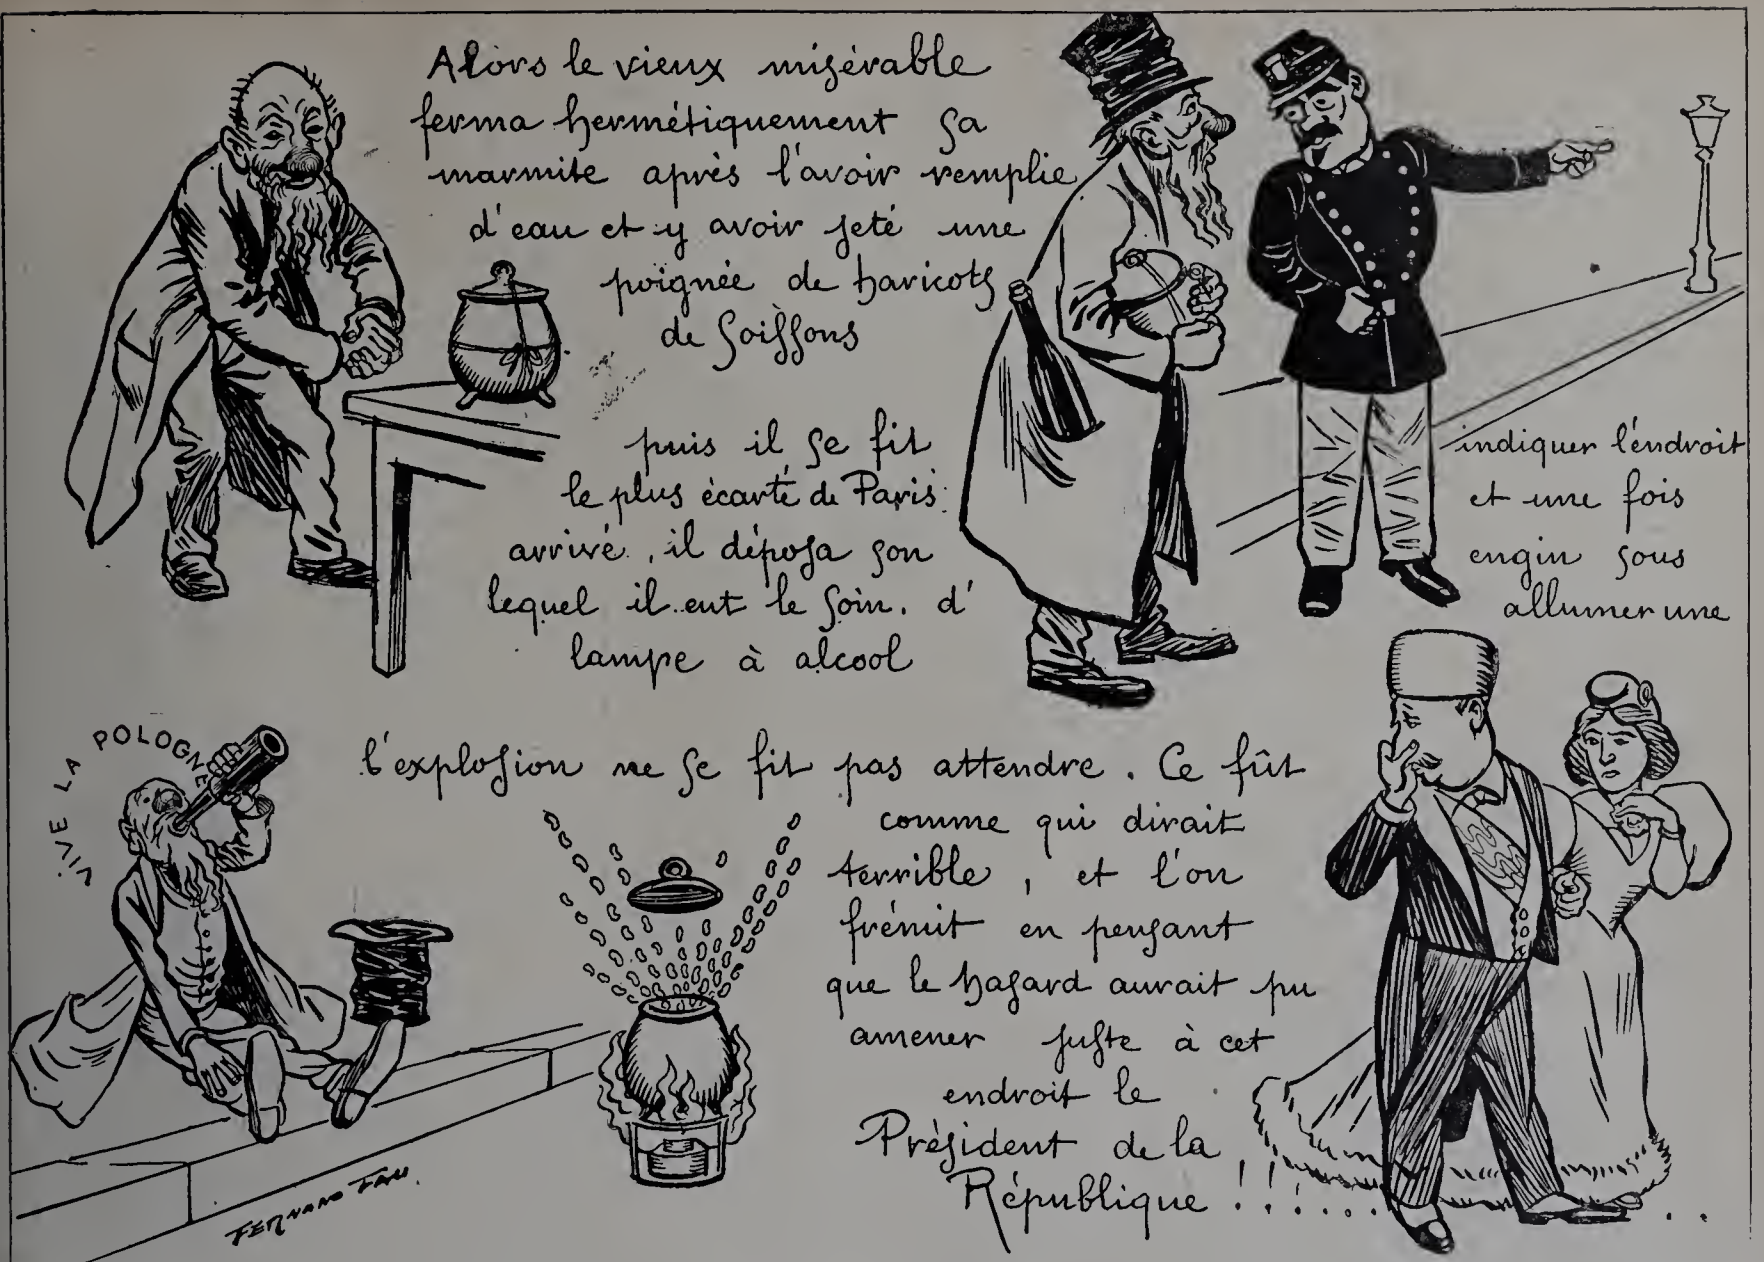 Alors le vieux misérable
ferma hermétiquement sa
marmite après l'avoir remplie
d'eau et y avoir jeté une
poignée de haricots
de Soissons
puis il se fit indiquer l'éndroit
le plus écarté de Paris et une fois
arrivé, il déposa son engin sous
lequel il eut le soin d'allumer une
lampe à alcool
VIVE LA POLOGNE
l'explosion ne se fit pas attendre. Ce fût
comme qui dirait
terrible, et l'on
frémit en pensant
que le hasard aurait pu
amener juste à cet
endroit le
Président de la
République !!!.....
FERNAND FAU.